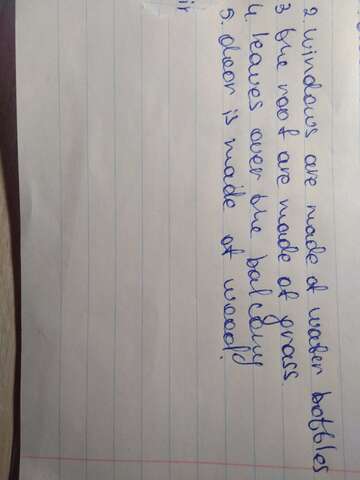 2. windows are made of water bottles
3 the roof are made of grass.
4. leaves over the balcony
5. door is made of woood.